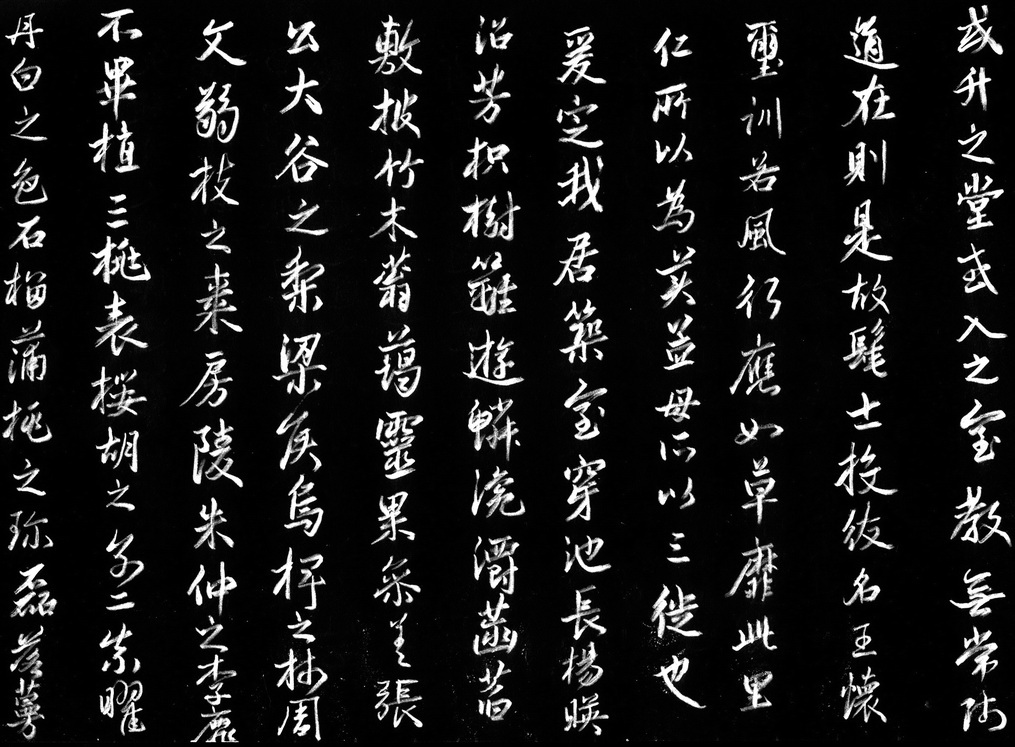 或升之堂或入之室教無常師
道在則是故髦士投紱名王懷
璽訓若風行應如草靡此里
仁所以為美孟母所以三徙也
爰定我居築室穿池長楊暎
沼芳枳樹籬遊鱗瀺灂菡萏
敷披竹木蓊藹靈果參差張
公大谷之梨梁侯烏椑之柿周
文弱枝之棗房陵朱仲之李靡
不畢植三桃表櫻胡之別二柰曜
丹白之色石榴蒲桃之珍磊落蔓